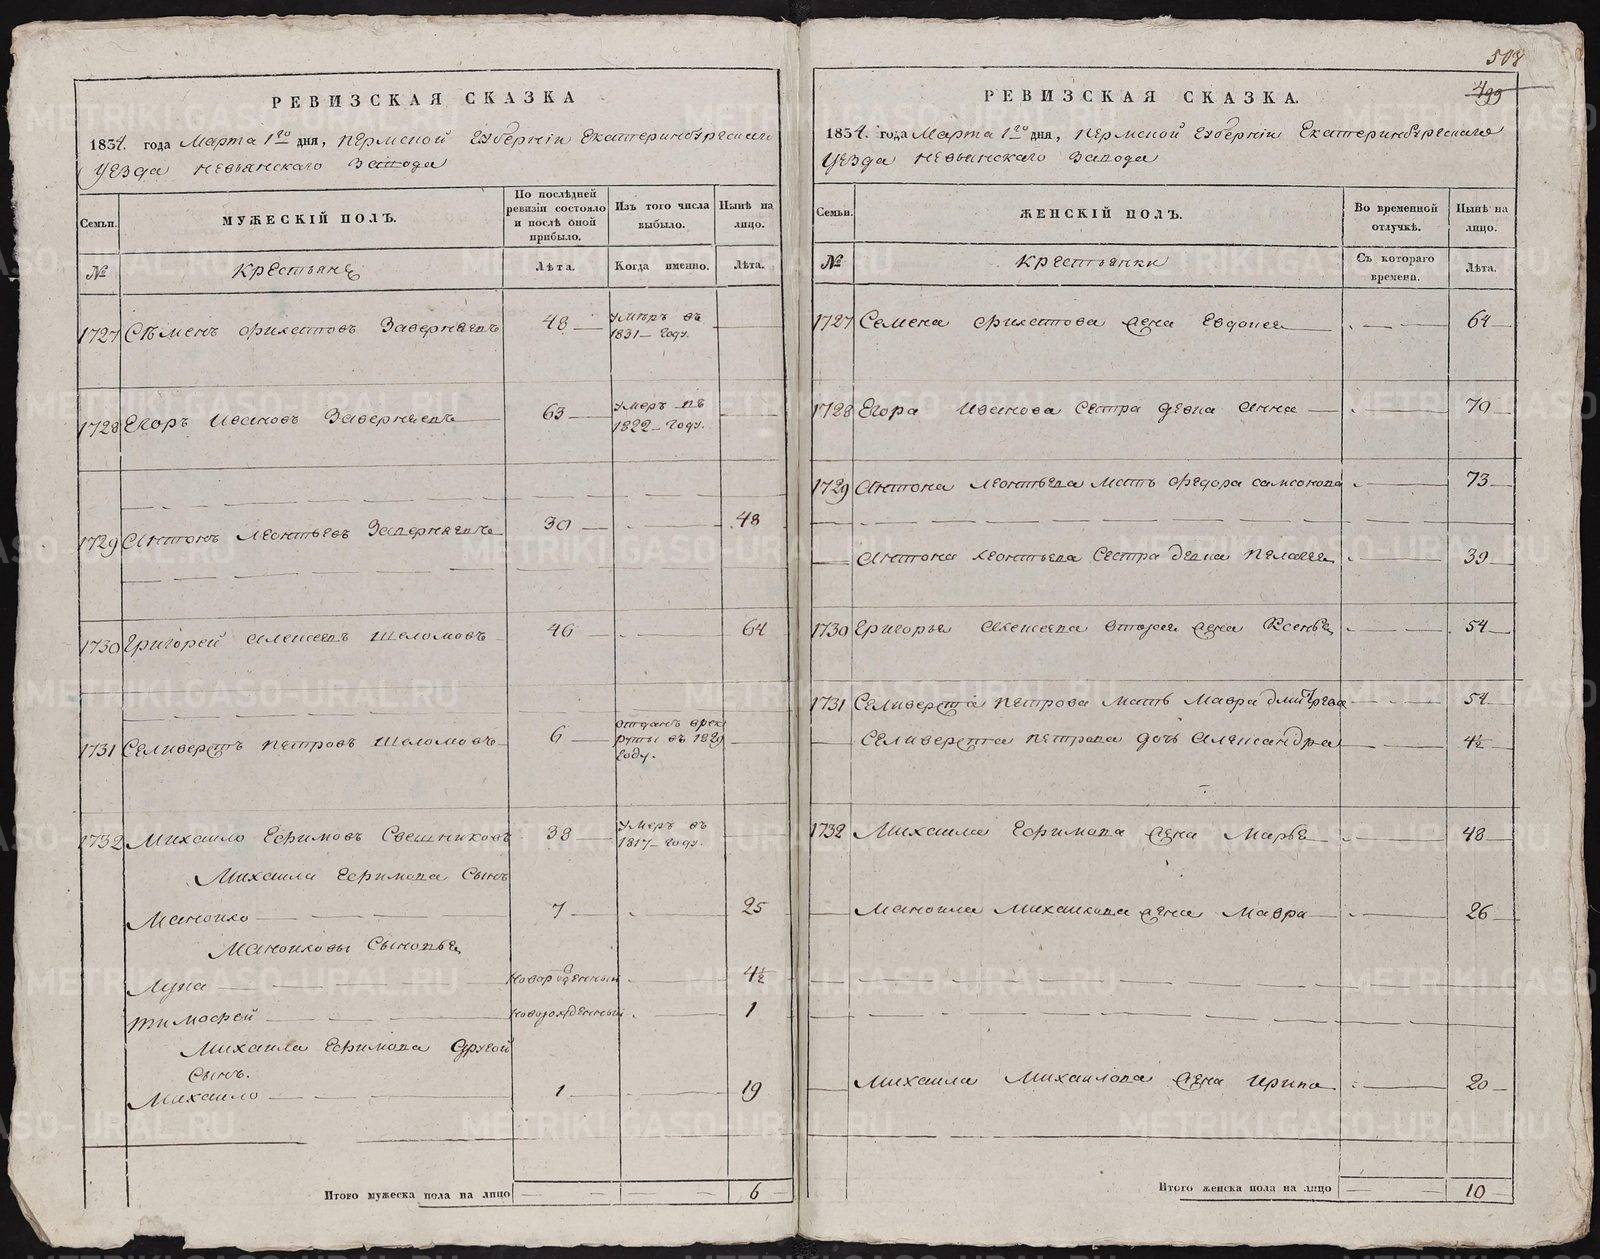 508
499
РЕВИЗСКАЯ СКАЗКА
1834. года Марта 1го дня, Пермской Губерніи Екатеринбургскаго
Уезда Невьянскаго Завода
Семьи.
МУЖЕСКІЙ ПОЛЪ.
По послѣдней ревизіи состояло и послѣ оной прибыло.
Изъ того числа выбыло.
Нынѣ на лицо.
№
Крестьяне
Лѣта.
Когда именно.
Лѣта.
1727 Семенъ Филатовъ 48 умеръ въ
1831 году.
1728 Егоръ Ивановъ 63 умеръ въ
1822 году.
1729 Антонъ Леонтьевъ 30 48
1730 Григорей Алексеевъ Шеломовъ 46 64
1731 Селиверстъ Петровъ Шеломовъ 6 отданъ в рек
руты въ 1829
году.
1732 Михаило Ефимовъ Свешниковъ 38 умеръ въ
1817 году.
Михаила Ефимова Сынъ
Маноило 7 25
Маноиловы Сыновья
Лука новорожденный 4½
Тимофей новорожденный 1
Михаила Ефимова другой
Сынъ.
Михаило 1 19
Итого мужеска пола на лицо 6
РЕВИЗСКАЯ СКАЗКА.
1834. года Марта 1го дня, Пермской Губерніи Екатеринбургскаго
Уезда Невьянскаго Завода
Семьи.
ЖЕНСКІЙ ПОЛЪ.
Во временной отлучкѣ.
Нынѣ на лицо.
№
Крестьянки
Съ котораго времени.
Лѣта.
1727 Семена Филатова жена Евдокея 64
1728 Егора Иванова сестра девка Анна 70
1729 Антона Леонтьева мать Федора Самсонова 73
Антона Леонтьева сестра девка Пелагея 39
1730 Григорья Алексеева вторая жена Ксенья 54
1731 Селиверста Петрова мать Мавра Дмитрева 54
Селиверста Петрова дочь Александра 4½
1732 Михаила Ефимова жена Марья 48
Маноила Михаилова жена Мавра 26
Михаила Михаилова жена Ирина 20
Итого женска пола на лицо 10
METRIKI.GASO-URAL.RU